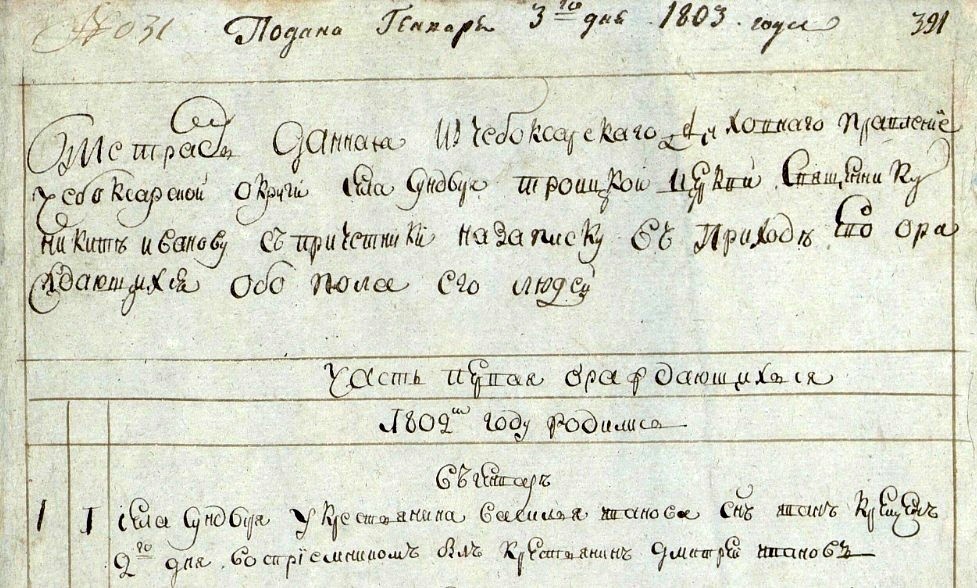 № 031 Подана Генваръ 3го дня 1803 года 391
Метрава Данная Изчебоксарскаго Духовнаго Правленiя
чебоксарской округи села Сундыря троицкой церкви Священнику
никитѣ иванову съ причетники на записку въ Приходѣ его ора
ждающихся обо пола его людей
Часть первая оражДающихъся
1802го году родились
въ генварѣ
1 1 села Сундыря у крестьянина василья иванова снъ иванъ Крещенъ
2го дня воспрiемникомъ былъ крестьянинъ Дмитрей ивановъ